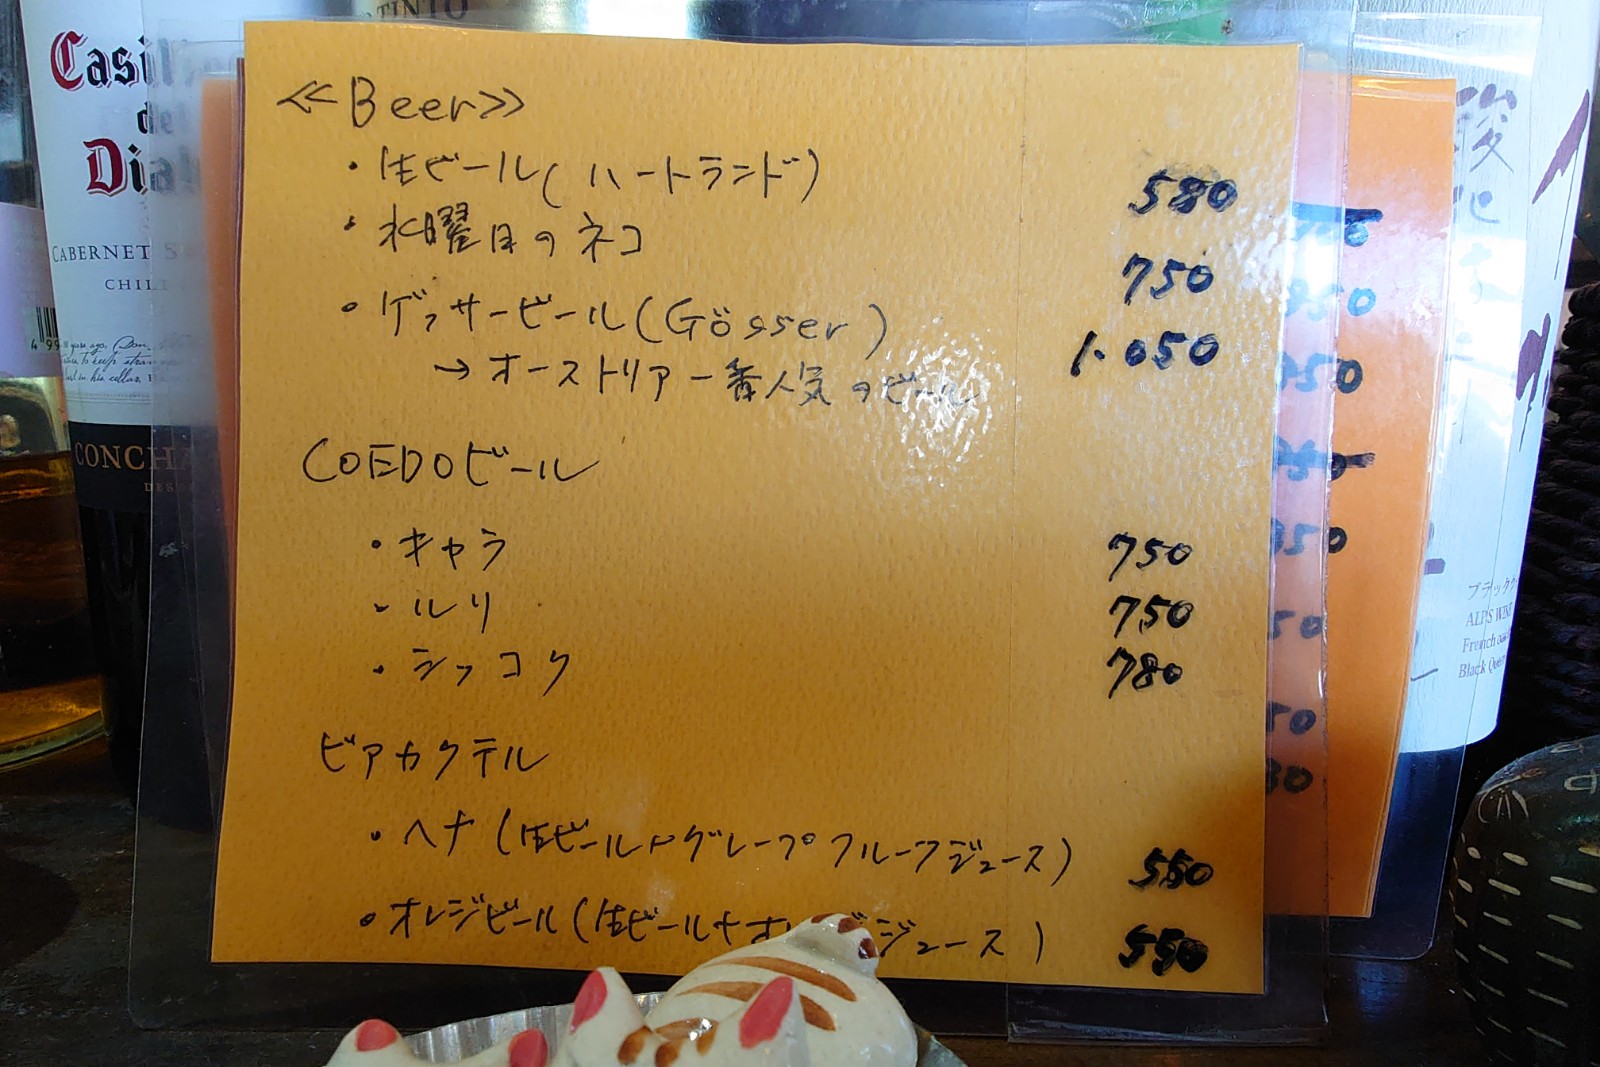 ≪Beer≫
・生ビール(ハートランド) 580
・水曜日のネコ 750
・ゲッサービール(Gösser) 1.050
→オーストリア一番人気のビール
COEDOビール
・キャラ 750
・ルリ 750
・シッコク 780
ビアカクテル
・ヘナ(生ビール+グレープフルーツジュース) 550
・オレンジビール(生ビール+オ ジュース) 550
Diab
CABERNET
CHIL
CONCHA
ALPS WINE
French oak
Black Queen